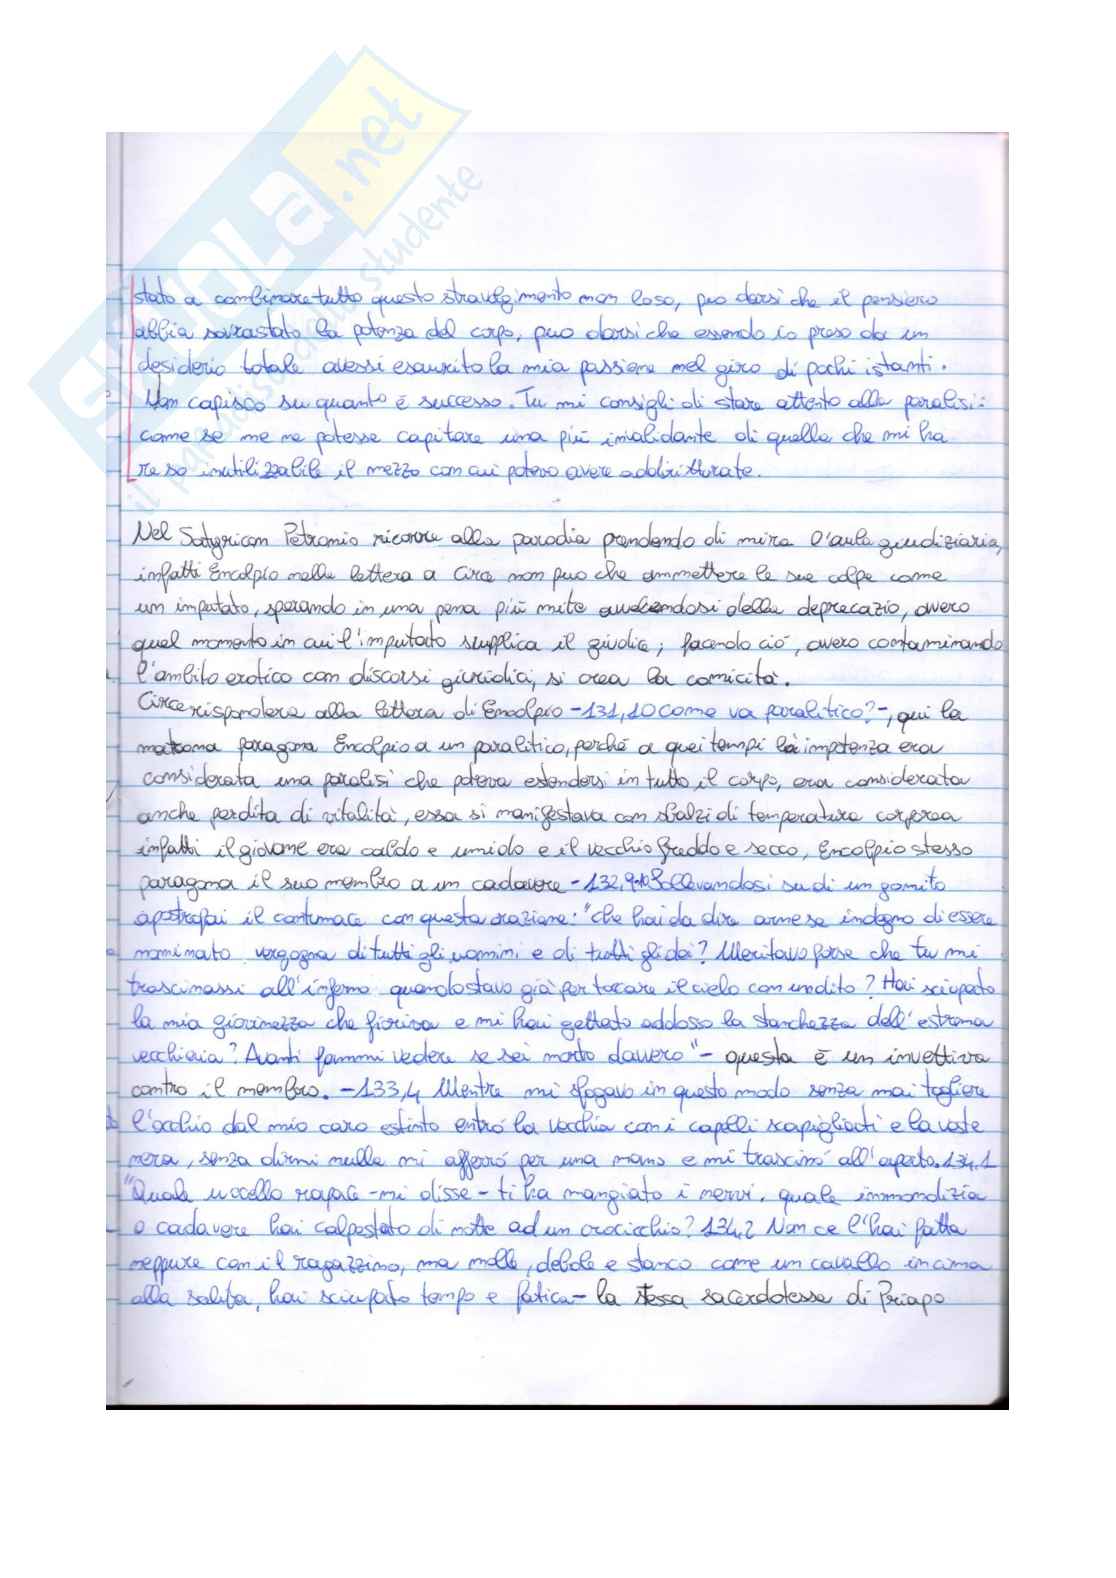 SKUOLA.net
il paradiso dello studente
stato a combinare tutto questo stravolgimento non loso, puo darsi che il pensiero
abbia sovrastato la potenza del corpo, puo darsi che essendo io preso da un
desiderio totale avessi esaurito la mia passione nel giro di pochi istanti.
Non capisco su quanto è successo. Tu mi consigli di stare attento alla paralisi:
come se me ne potesse capitare una più invalidante di quella che mi ha
reso inutilizzabile il mezzo con cui potevo avere addirittura te.
Nel Satyricon Petronio ricorre alla parodia prendendo di mira l'aula giudiziaria,
infatti Encolpio nella lettera a Circe non puo che ammettere le sue colpe come
un imputato, sperando in una pena più mite avvalendosi della deprecazio, ovvero
quel momento in cui l'imputato supplica il giudice; facendo ciò, ovvero contaminando
l'ambito erotico con discorsi giuridici, si crea la comicità.
Circe risponderà alla lettera di Encolpio -131,10 Come va paralitico?-, qui la
matrona paragona Encolpio a un paralitico, perché a quei tempi la impotenza era
considerata una paralisi che poteva estendersi in tutto il corpo, era considerata
anche perdita di vitalità, essa si manifestava con sbalzi di temperatura corporea
infatti il giovane era caldo e umido e il vecchio freddo e secco, Encolpio stesso
paragona il suo membro a un cadavere -132,9-10 Sollevandosi su di un gomito
apostrofai il contumace con questa orazione: "che hai da dire arnese indegno di essere
nominato vergogna di tutti gli uomini e di tutti gli dei? Meritavo forse che tu mi
trascinassi all'inferno quando stavo già per toccare il cielo con un dito? Hai sciupato
la mia giovinezza che fioriva e mi hai gettato addosso la stanchezza dell'estrema
vecchiaia? Avanti fammi vedere se sei morto davvero"- questa è un invettiva
contro il membro. -133,4 Mentre mi sfogavo in questo modo senza mai togliere
l'occhio dal mio caro estinto entrò la vecchia con i capelli scapigliati e la veste
nera, senza dirmi nulla mi afferrò per una mano e mi trascinò all'aperto. 134,1
"Quale uccello rapace -mi disse- ti ha mangiato i nervi, quale immondizia
o cadavere hai calpestato di notte ad un crocicchio? 134,2 Non ce l'hai fatta
neppure con il ragazzino, ma molle, debole e stanco come un cavallo in cima
alla salita, hai sciupato tempo e fatica- la stessa sacerdotessa di Priapo